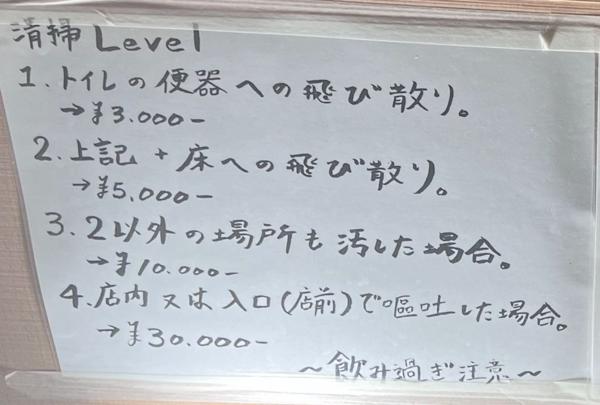 清掃 Level
1. トイレの便器への飛び散り。
→¥3.000-
2. 上記 + 床への飛び散り。
→¥5,000-
3. 2以外の場所も汚した場合。
→¥10.000-
4. 店内又は入口(店前)で嘔吐した場合。
→¥30.000-
～飲み過ぎ注意～